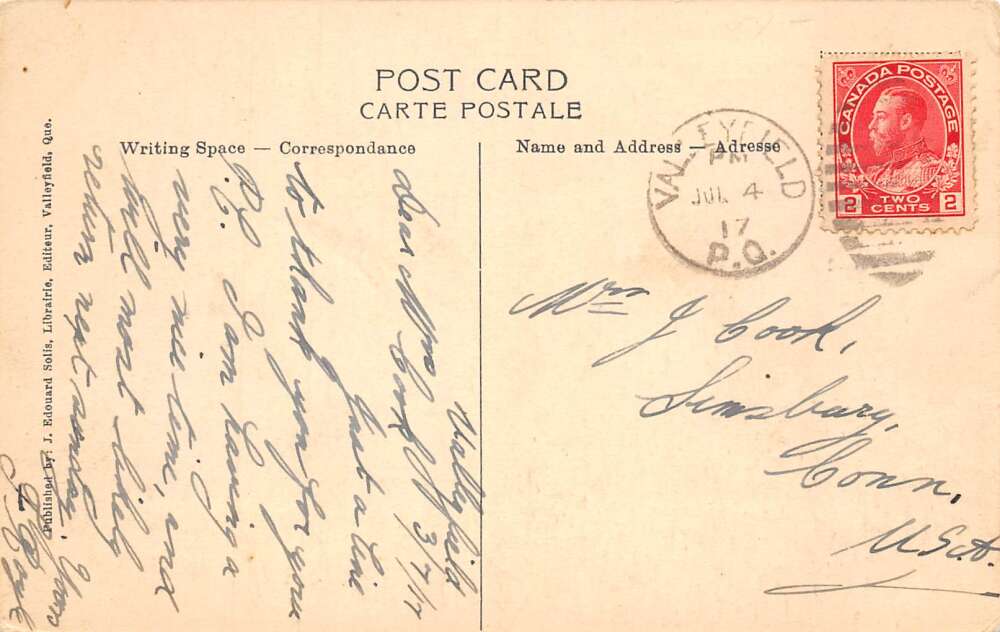 POST CARD
CARTE POSTALE
Writing Space — Correspondance
Name and Address — Adresse
CANADA POSTAGE
2 TWO CENTS 2
VALLEYFIELD
PM
JUL 4
17
P.Q.
Valleyfield
3/7/17
Dear Mrs Cook
Just a line
to thank you for your
P.C. I am having a
very nice time, and
will most likely
return next
Yours
Mrs J Cook,
Simsbury,
Conn,
U.S.A.
Published by: J. Edouard Solis, Librairie, Editeur, Valleyfield, Que.